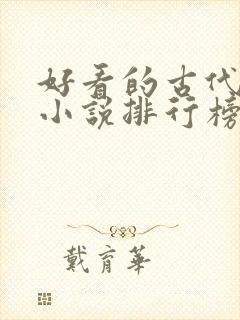 好看的古代
小说排行榜
戴育華